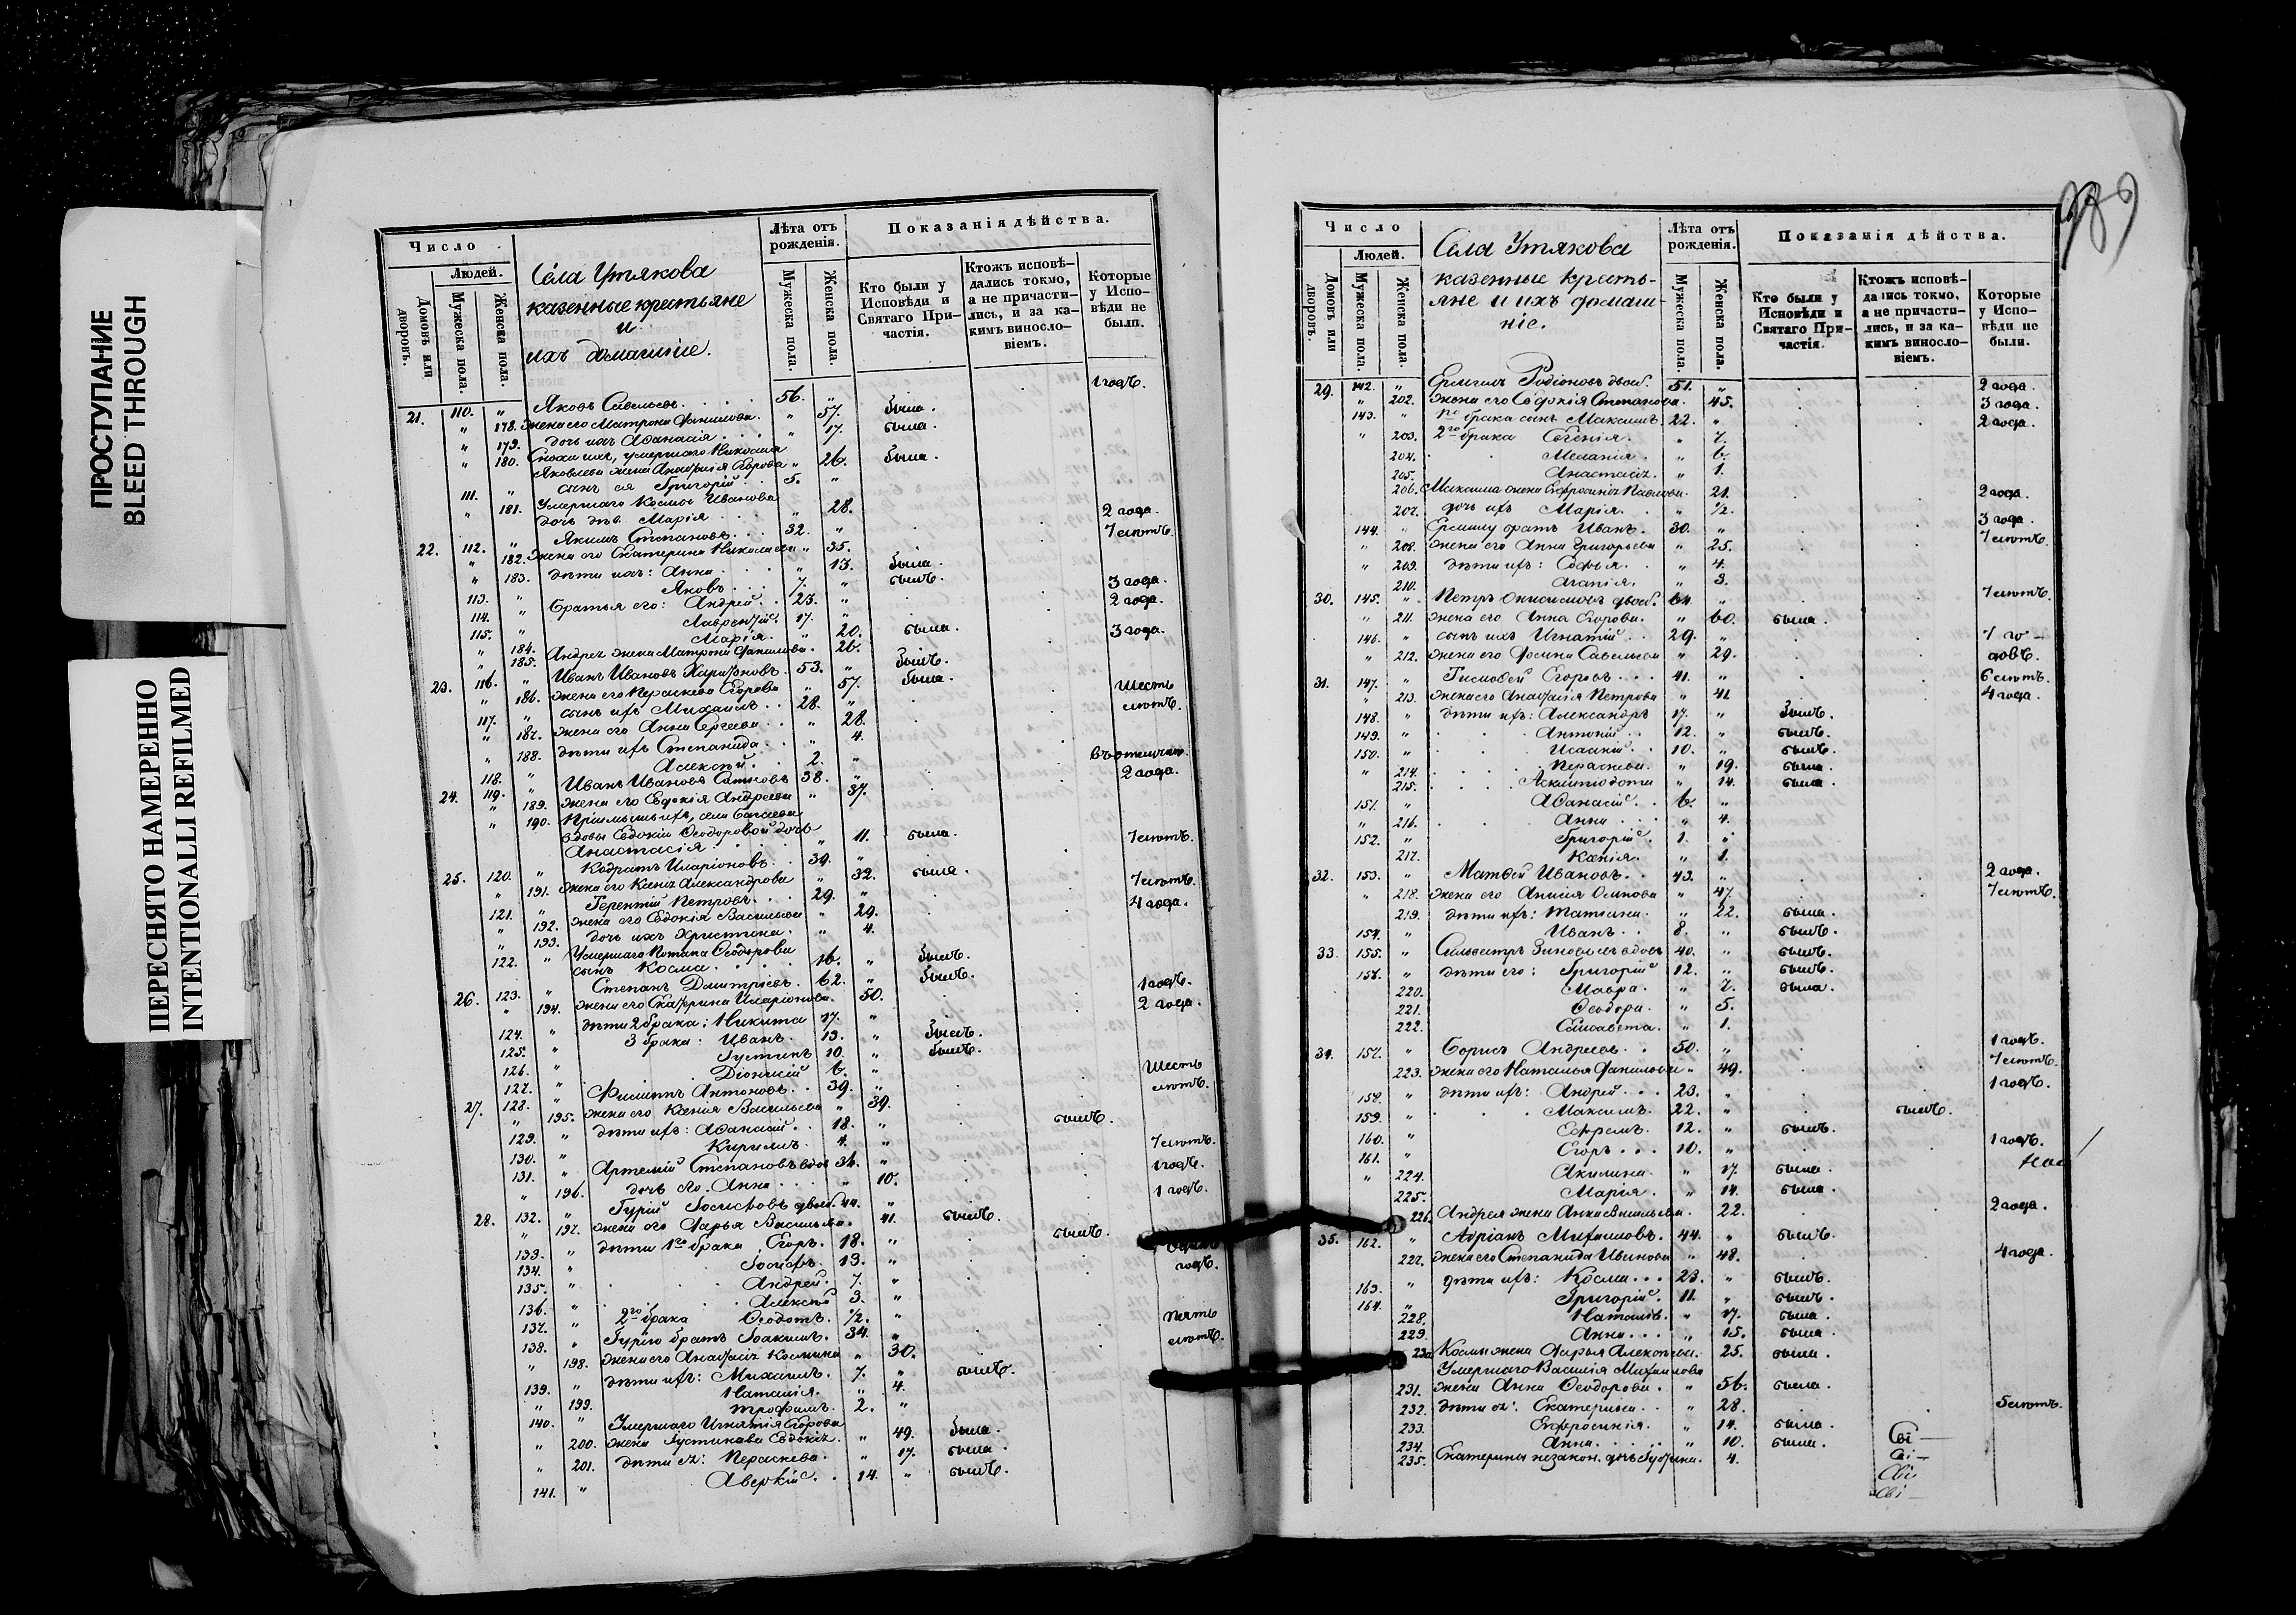 ПРОСТУПАНИЕ
BLEED THROUGH
ПЕРЕСНЯТО НАМЕРЕННО
INTENTIONALLI REFILMED
Число
Людей.
Домовъ или дворовъ.
Мужеска пола.
Женска пола.
Села Утякова
казенные крестьяне
и
ихъ домашніе.
Лѣта отъ рожденія.
Мужеска пола.
Женска пола.
Показанія дѣйства.
Кто были у Исповѣди и Святаго Причастія.
Ктожъ исповѣдались токмо, а не причастились, и за какимъ винословіемъ.
Которые у Исповѣди не были.
21. 110. " Яковъ Савельевъ 56. " 1 годъ.
" 178. Жена его Матрона Данилова " 57. была.
" 179. дочь ихъ Аѳанасія " 17. была.
" 180. Сноха ихъ, умершаго Николая
Яковлева жена Анастасія Егорова " 26. была.
111. " сынъ ея Григорій 5. "
Умершаго Космы Иванова
" 181. дочь дѣв. Марія " 28. 2 года.
22. 112. " Якимъ Степановъ 32. " 7 лѣтъ.
" 182. Жена его Екатерина Николаева " 35. была.
" 183. дѣти ихъ: Анна " 13. былъ.
113. " Яковъ 7. " 3 года.
114. " Братья его: Андрей 23. " 2 года.
115. " Лаврентій 17. "
" 184. Марія " 20. была. 3 года.
" 185. Андрея жена Матрона Данилова " 26.
23. 116. " Иванъ Ивановъ Харитоновъ 53. " былъ.
" 186. Жена его Параскева Егорова " 57. была.
117. " сынъ ихъ Михаилъ 28. " шесть лѣтъ.
" 187. Жена его Анна Сергеева " 28.
" 188. дѣти ихъ Степанида " 4.
118. " Алексѣй 2. "
24. 119. " Иванъ Ивановъ 38. "
" 189. Жена его Евдокія Андреева " 37. 2 года.
" 190.
вдовы Евдокіи Ѳеодоровой дочь
Анастасія " 11. была.
25. 120. " Кодратъ Иларіоновъ 39. " 7 лѣтъ.
" 191. Жена его Ксенія Александрова " 32. была.
121. " Терентій Петровъ 29. " 7 лѣтъ.
" 192. Жена его Евдокія Васильева " 29. 4 года.
" 193. дочь ихъ Христина " 4.
Умершаго Ѳеодорова
122. " сынъ Косма 16. " былъ.
26. 123. " Степанъ Дмитріевъ 62. " былъ.
" 194. Жена его Екатерина Иларіонова " 50. 1 годъ.
124. " дѣти 2 брака: Никита 17. " 2 года.
125. " 3 брака: Иванъ 13. " былъ.
126. " Густинъ 10. " былъ.
127. " Діонисій 6. "
27. 128. " Филиппъ Антоновъ 39. " шесть лѣтъ.
" 195. Жена его Ксенія Васильева " 39.
129. " дѣти ихъ: Аѳанасій 18. " былъ.
130. " Кирилъ 4. "
131. " Артемій Степановъ вдов 36. " 7 лѣтъ.
" 196. дочь его Анна " 10. 1 годъ.
28. 132. " Гурій Іосифовъ двоеб. 44. " 1 годъ.
" 197. Жена его Дарья Васильева " 41. былъ.
133. " дѣти 1го брака Егоръ 18. " былъ.
134. " Іосифъ 13. " годъ.
135. " Андрей 7. "
136. " Алексѣй 3. "
137. " 2го брака Ѳеодотъ 1/2. "
138. " Гурію братъ Іоакимъ 34. " пять лѣтъ.
" 198. Жена его Анастасія Космина " 30.
139. " дѣти ихъ: Михаилъ 7. " былъ.
" 199. Наталія " 4.
140. " Трофимъ 2. "
Умершаго Игнатія Егорова
" 200. жена Іустинова Евдокія " 49. была.
" 201. дѣти ея: Параскева " 17. была.
141. " Аверкій 14. " былъ.
989
Число
Людей.
Домовъ или дворовъ.
Мужеска пола.
Женска пола.
Села Утякова
казенные кресть-
яне и ихъ домаш-
ніе.
Лѣта отъ рожденія.
Мужеска пола.
Женска пола.
Показанія дѣйства.
Кто были у Исповѣди и Святаго Причастія.
Ктожъ исповѣдались токмо, а не причастились, и за какимъ винословіемъ.
Которые у Исповѣди не были.
29. 142. " Ермилъ Родіоновъ двоеб. 51. " 2 года.
" 202. Жена его Евдокія Степанова " 45. 3 года.
143. " 1го брака сынъ Максимъ 22. " 2 года.
" 203. 2го брака Евгенія " 7.
204. Меланія " 6.
205. Анастасія " 1.
206. Максима жена Евфросинія Павлова 21. 2 года.
207. дочь ихъ Марія " 1/2.
144. " Ермилу братъ Иванъ 30. " 3 года.
" 208. Жена его Анна Григорьева " 25. 7 лѣтъ.
" 209. дѣти ихъ: Софья " 4.
210. Агапія " 3.
30. 145. " Петръ Онисимовъ двоеб. 64. " 7 лѣтъ.
" 211. Жена его Анна Егорова " 60. была.
146. " сынъ ихъ Игнатій 29. " 7 го-
" 212. Жена его Домна Савельева " 29. довъ.
31. 147. " Тимофей Егоровъ 41. " 6 лѣтъ.
" 213. Жена его Анастасія Петрова " 41. 4 года.
148. " дѣти ихъ: Александръ 17. " былъ.
149. " Антоній 12. " былъ.
150. " Исаакій 10. " былъ.
" 214. Параскева " 19. была.
215. Асклипіодота " 14. была.
151. " Аѳанасій 6. "
" 216. Анна " 4.
152. " Григорій 1. "
217. Ксенія " 1.
32. 153. " Матвей Ивановъ 43. " 2 года.
" 218. Жена его Анисія Осипова " 47. 7 лѣтъ.
219. дѣти ихъ: Татіана " 22. была.
154. " Иванъ 8. " былъ.
33. 155. " Сильвестръ Зиновьевъ вдовъ 40. " былъ.
156. " дѣти его: Григорій 12. " былъ.
220. Мавра " 7. была.
221. Ѳеодора " 5.
222. Елисавета " 1.
34. 157. " Борисъ Андреевъ 50. " 1 годъ.
223. Жена его Наталья Данилова " 49. 7 лѣтъ.
158. " дѣти ихъ: Андрей 23. " 1 годъ.
159. " Максимъ 22. " былъ.
160. " Ефремъ 12. " былъ.
161. " Егоръ 10. " 1 годъ.
" 224. Акилина " 17. была.
225. Марія " 14. была.
226. Андрея жена Анна Васильева 22. 2 года.
35. 162. " Адріанъ Михаиловъ 44. " былъ.
227. Жена его Степанида Иванова " 48. 4 года.
163. " дѣти ихъ: Косма 23. " былъ.
164. " Григорій 11. " былъ.
228. Наталія " 17. была.
229. Анна " 15. была.
230. Космы жена Дарья Алексѣева 25. была.
Умершаго Василія Михаилова
231. жена Анна Ѳеодорова " 56. была.
232. дѣти ея: Екатерина " 28. 5 лѣтъ.
233. Евфросинія " 14. была.
234. Анна " 10. была.
235. Екатерины незакон. дочь 4.